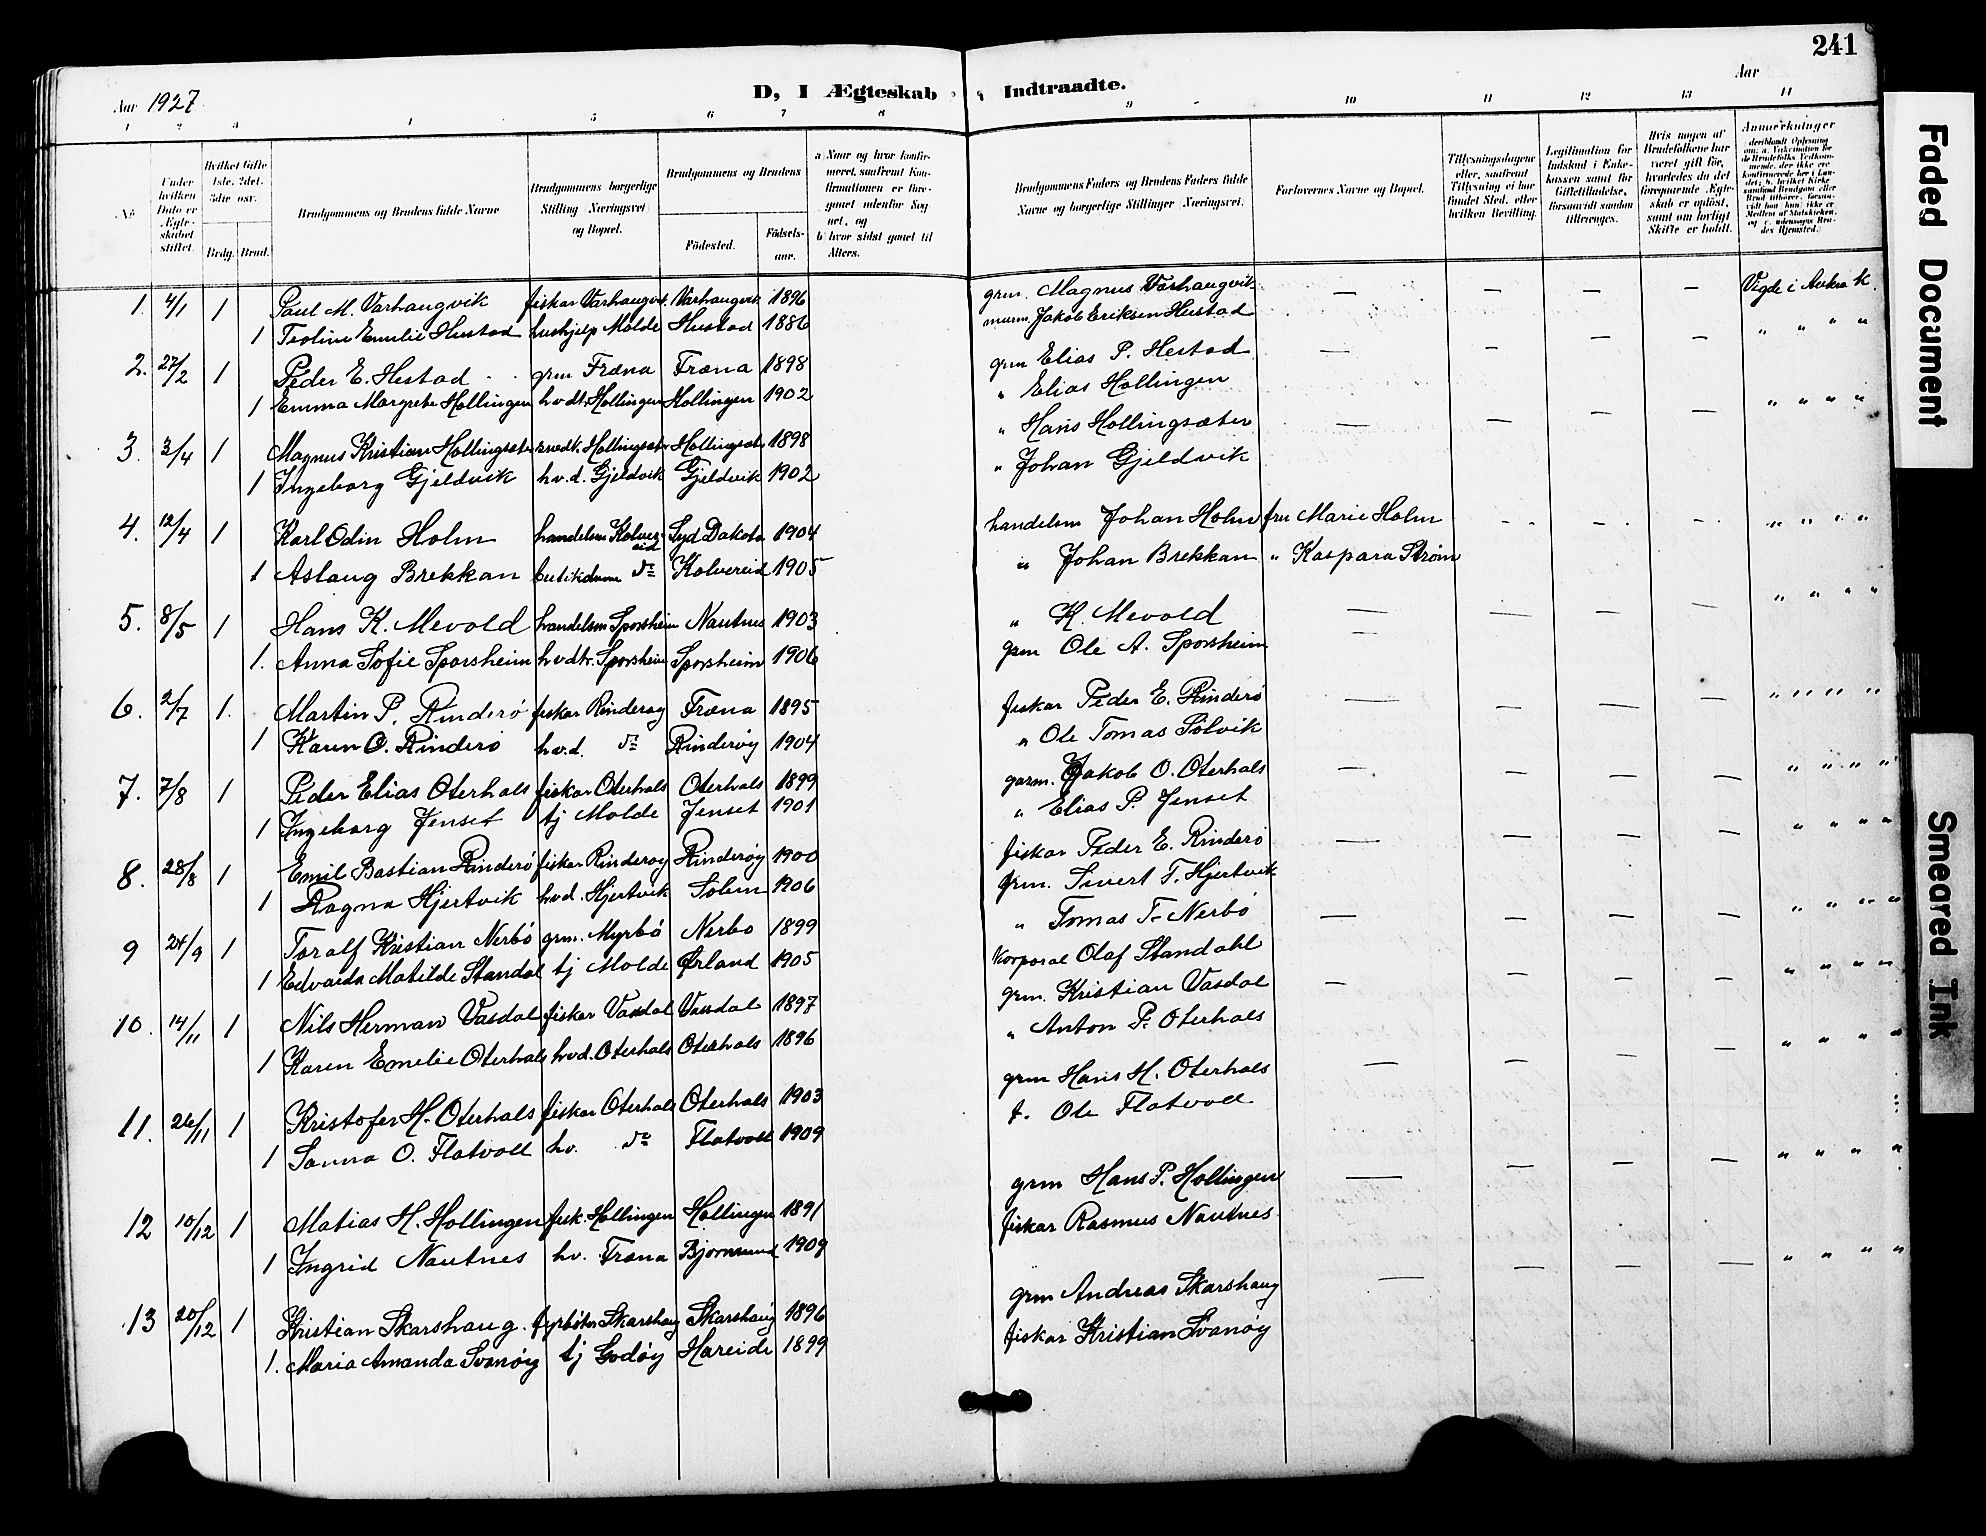 241
Aar 1927.
D, I Ægteskab Indtraadte.
Aar
1 2 3 4 5 6 7 8 9 10 11 12 13 14
No.
Under hvilken Dato er Ægteskabet stiftet.
Hvilket Gifte 1ste, 2det, 3die osv.
Brdg. Brud.
Brudgommens og Brudens fulde Navne
Brudgommens borgerlige Stilling (Næringsvei) og Bopæl.
Brudgommens og Brudens
Fødested.
Fødselsaar.
a Naar og hvor konfirmeret, saafremt Konfirmationen er foregaaet udenfor Sognet, og
b hvor sidst gaaet til Alters.
Brudgommens Faders og Brudens Faders fulde Navne og borgerlige Stillinger (Næringsvei).
Forlovernes Navne og Bopæl.
Tillysningsdagene eller, saafremt Tillysning ei har fundet Sted, efter hvilken Bevilling.
Legitimation for Indskud i Enkekassen samt for Giftetilladelse, forsaavidt saadan tiltrænges.
Hvis nogen af Brudefolkene har været gift før, hvorledes da det foregaaende Ægteskab er opløst, samt om lovligt Skifte er holdt.
Anmerkninger
1. 4/1 1 Paul M. Varhaugvik fiskar Varhaugvk. Varhaugvik 1896 grm. Magnus Varhaugvik — — — — Vigde i Aukra K.
1 Teoline Emelie Hustad hushjelp Molde Hustad 1886 murm. Jakob Eriksen Hustad
2. 27/2 1 Peder E. Hestad grm Fræna Fræna 1898 grm Elias P. Hestad — — — — " " " "
1 Emma Margrete Hollingen hvdtr. Hollingen Hollingen 1902 " Elias Hollingen
3. 3/4 1 Magnus Kristian Hollingsæter Hollingsæter Hollingsæt 1898 " Hans Hollingsæter — — — — " " " "
1 Ingeborg Gjeldvik hv.d. Gjeldvik Gjeldvik 1902 " Johan Gjeldvik
4. 12/4 1 Karl Odin Holm handelsm Kolvereid Syd Dakota 1904 handelsm Johan Holm fru Marie Holm - - - - " " " "
1 Aslaug Brekkan butikdame do Kolvereid 1905 " Johan Brekkan " Kaspara Strøm
5. 8/5 1 Hans K. Mevold handelsm Sporsheim Nautnes 1903 " K. Mevold — — — — " " " "
1. Anna Sofie Sporsheim hvdtr. Sporsheim Sporsheim 1906 grm Ole A. Sporsheim —
6. 2/7 1. Martin P. Rinderø fiskar Rinderøy Fræna 1895 fiskar Peder E. Rinderø — — — — " " " "
1 Karen O. Rinderø hv.d. do Rinderøy 1904 " Ole Tomas Solvik
7. 7/8 1 Peder Elias Oterhals fiskar Oterhals Oterhals 1899 garm. Jakob O. Oterhals — — — — " " " "
1 Ingeborg Jenset tj Molde Jenset 1901 " Elias P. Jenset
8. 28/8 1 Emil Bastian Rinderø fiskar Rinderøy Rinderøy 1900 fiskar Peder E. Rinderø — — — — " " " "
1 Ragna Hjertvik hvd. Hjertvik 1906 grm. Sivert T. Hjertvik
9 24/9 1 Toralf Kristian Nerbø grm. Myrbø Nerbø 1899 " Tomas T. Nerbø — — — — " " " "
1 Edvarda Matilde Standal tj Molde Ørland 1905 Korporal Olaf Standahl
10. 14/11 1 Nils Herman Vasdal fiskar Vasdal Vasdal 1897 grm. Kristian Vasdal — — — — " " " "
1 Karen Emelie Oterhals hvd. Oterhals Oterhals 1896 " Anton P. Oterhals
11. 26/11 1 Kristofer H. Oterhals fiskar Oterhals Oterhals 1903 grm Hans H. Oterhals — — — — " " " "
1 Sanna O. Flatvoll hv. do Flatvoll 1909 f. Ole Flatvoll
12 10/12 1 Matias H. Hollingen fisk. Hollingen Hollingen 1891 grm Hans P. Hollingen — — — — " " " "
1 Ingrid Nautnes hv. Fræna Bjørnsund 1909 fiskar Rasmus Nautnes
13 20/12 1 Kristian Skarshaug. fyrbøter Skarshaug Skarshaug 1896 grm Andreas Skarshaug — — — — " " " "
1. Maria Amanda Svanøy tj Godøy Hareide 1899 fiskar Kristian Svanøy
Faded Document
Smeared Ink